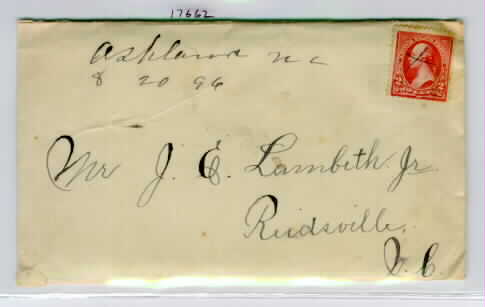 17662
Ashland N C
8 20 96
Mr J. E. Lambeth Jr
Reidsville,
N. C.